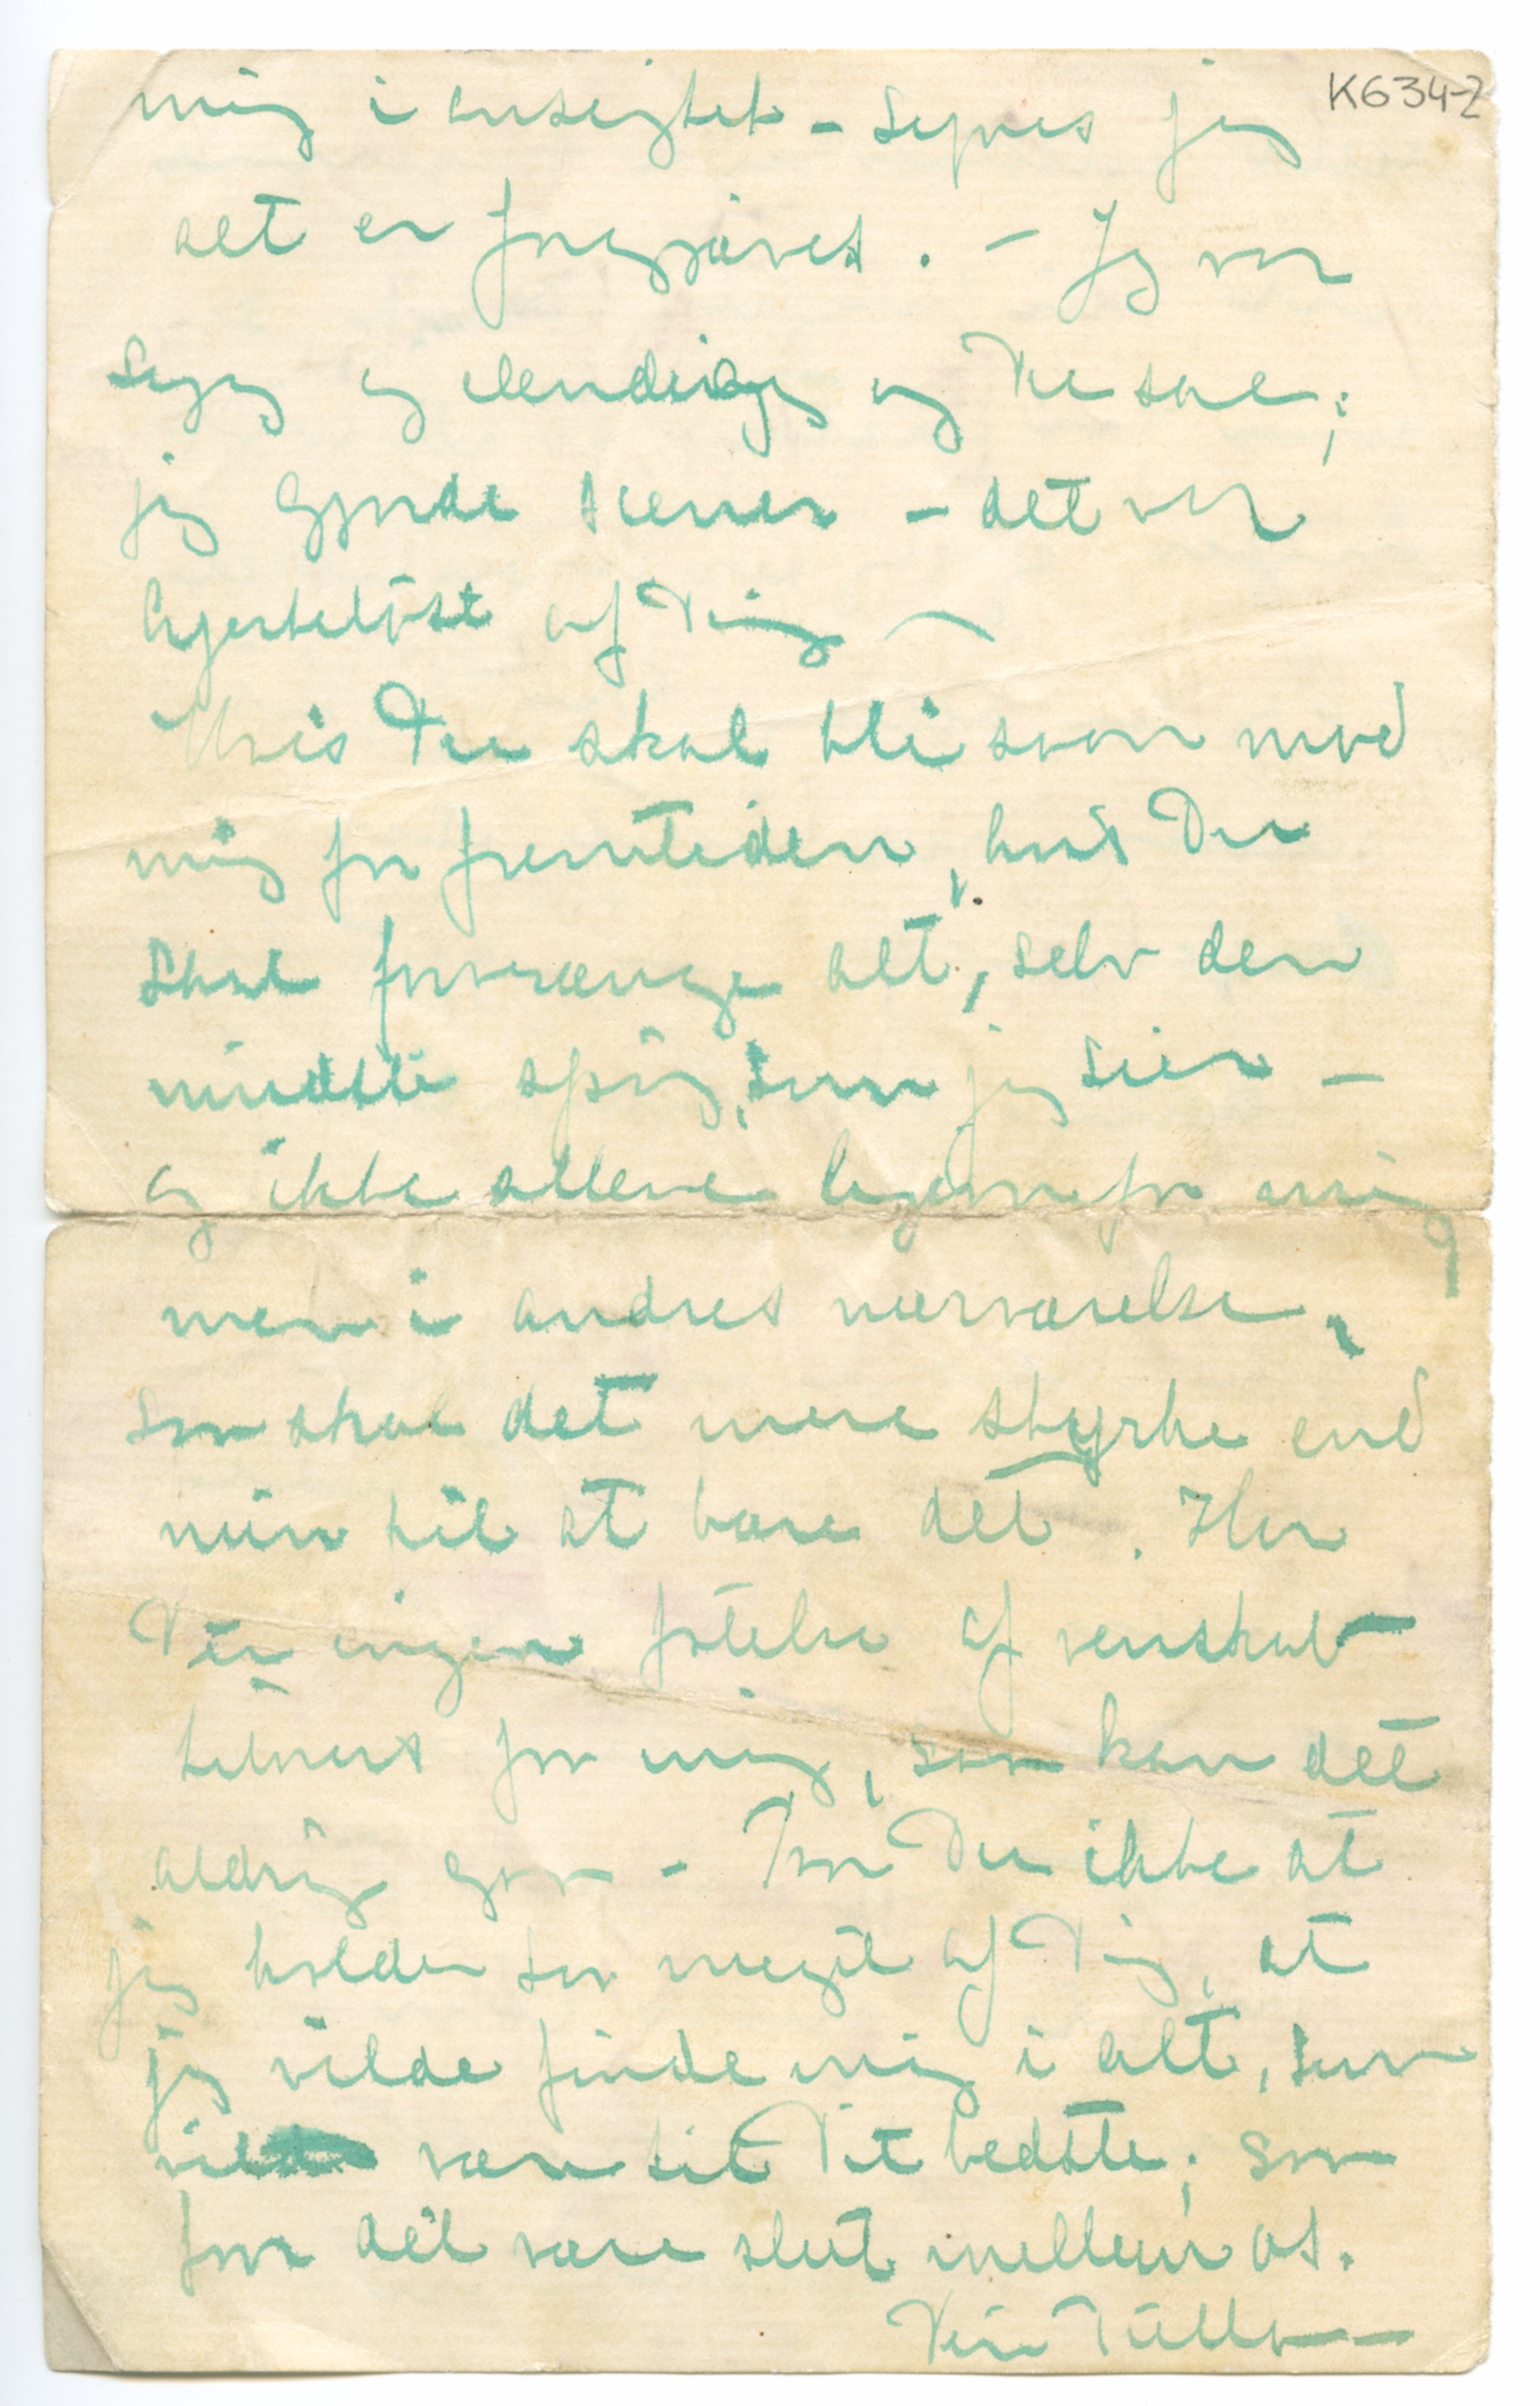 K634-2
mig i ansigtet – synes jeg
alt er forgjæves. – Jeg var
syg og elendig og Du saa;
jeg gjorde scener – det var
hjerteløst af Dig –
Hvis Du skal bli saan mod
mig for fremtiden, hvis Du
skal forvrænge alt, selv den
mindste spøg, som jeg sier –
og ikke allene ligeoverfor mig
men i andres nærværelse,
saa skal det mere styrke end
min til at bære det. Har
Du ingen følelse af venskab
tilovers for mig, saa kan det
aldrig gaa – Tror Du ikke at
jeg holder saa meget af Dig, at
jeg vilde finde mig i alt, som
være til Dit bedste; saa
faar det være slut mellem os.
Din Tulla –